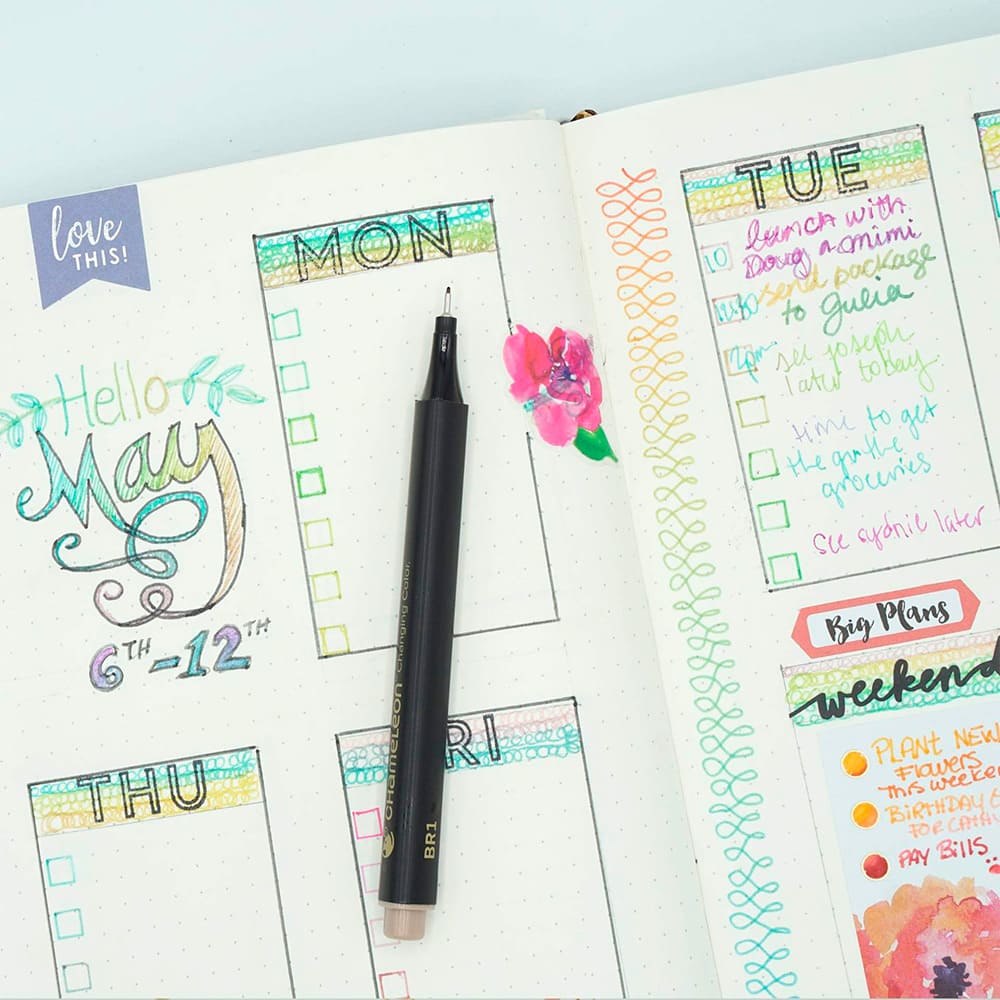 love
THIS!
Hello
May
6TH-12TH
MON
THU
RI
CHameLeon Changing Color.
BR1
TUE
10
lunch with
Doug n mimi
send package
to Gulia
2pm
see joseph
later today
time to get
the
groceries
See sydnie later
Big Plans
weekend
PLANT NEW
Flowers
THIS weeken
BIRTHDAY
FOR CATH
PAY Bills